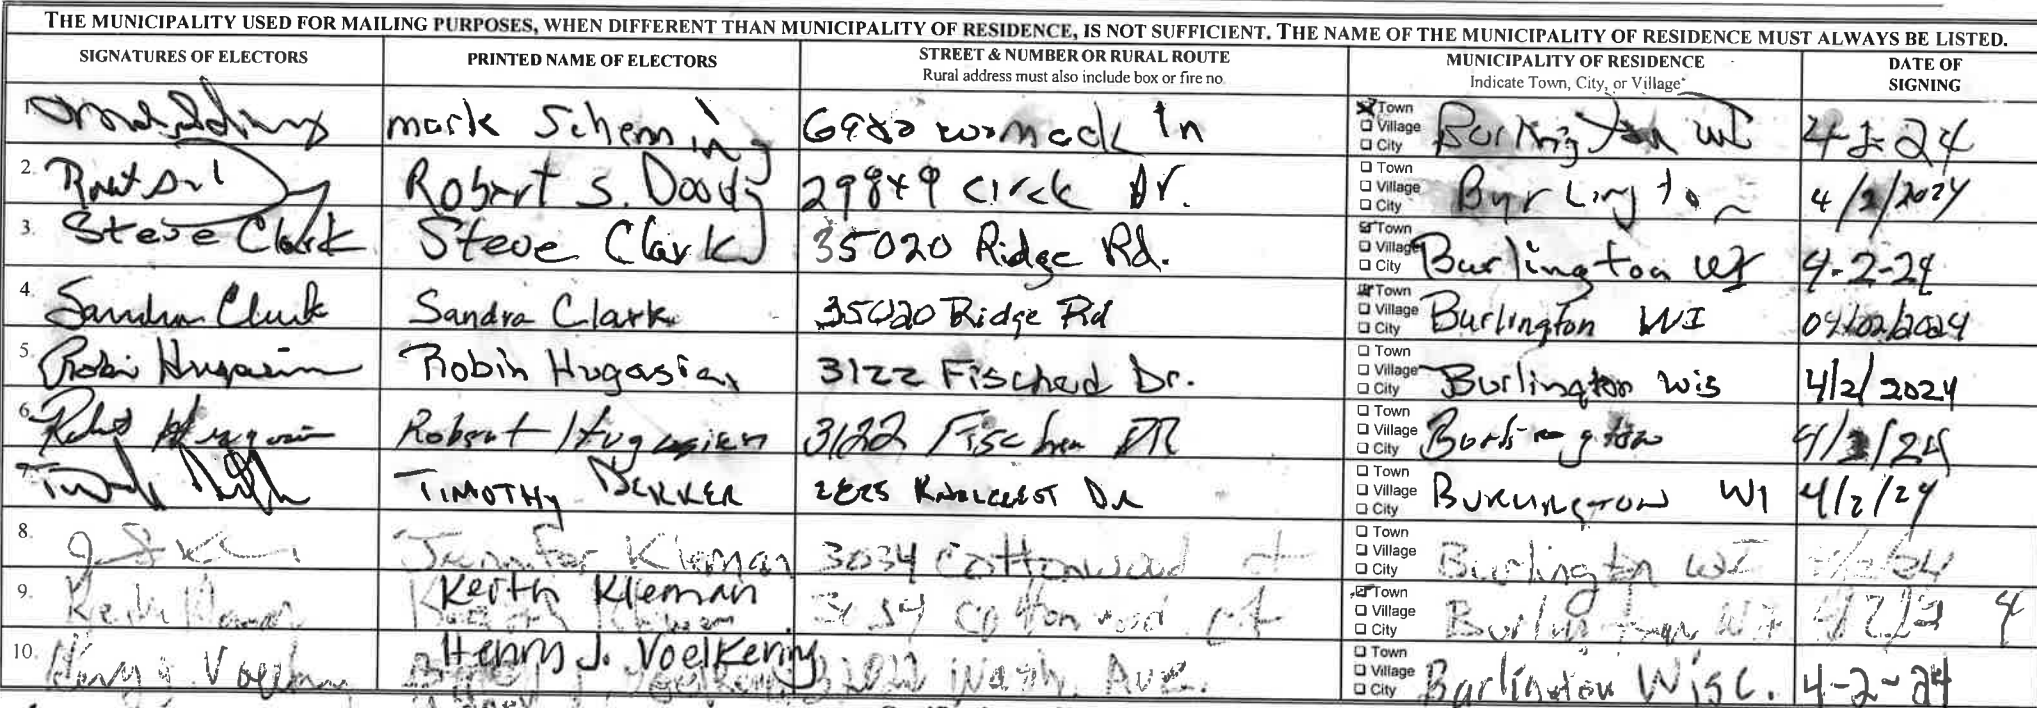 THE MUNICIPALITY USED FOR MAILING PURPOSES, WHEN DIFFERENT THAN MUNICIPALITY OF RESIDENCE, IS NOT SUFFICIENT. THE NAME OF THE MUNICIPALITY OF RESIDENCE MUST ALWAYS BE LISTED.
SIGNATURES OF ELECTORS PRINTED NAME OF ELECTORS STREET & NUMBER OR RURAL ROUTE MUNICIPALITY OF RESIDENCE DATE OF
Rural address must also include box or fire no. Indicate Town, City, or Village SIGNING
1. mark Scheming 6980 womack ln Town Village City Burlington WI 4-2-24
2. Robert S. Doody 29849 Circle Dr. Town Village City Burlington 4/2/2024
3. Steve Clark Steve Clark 35020 Ridge Rd. Town Village City Burlington WI 4-2-24
4. Sandra Clark Sandra Clark 35020 Ridge Rd Town Village City Burlington WI 04/02/2024
5. Robin Hugasian Robin Hugasian 3122 Dr. Town Village City Burlington Wis 4/2/2024
6. Robert Hugasian Robert Hugasian 3122 Fischer DR Town Village City Burlington 4/2/24
7. TIMOTHY DEKKER DR Town Village City BURLINGTON WI 4/2/24
8. Jennifer Kleman 3034 Cottonwood ct Town Village City Burlington WI
9. Keith Kleman Keith Kleman Cottonwood ct Town Village City Burlington WI
10. Henry J. Voelkering Wash. Ave. Town Village City Burlington Wisc. 4-2-24